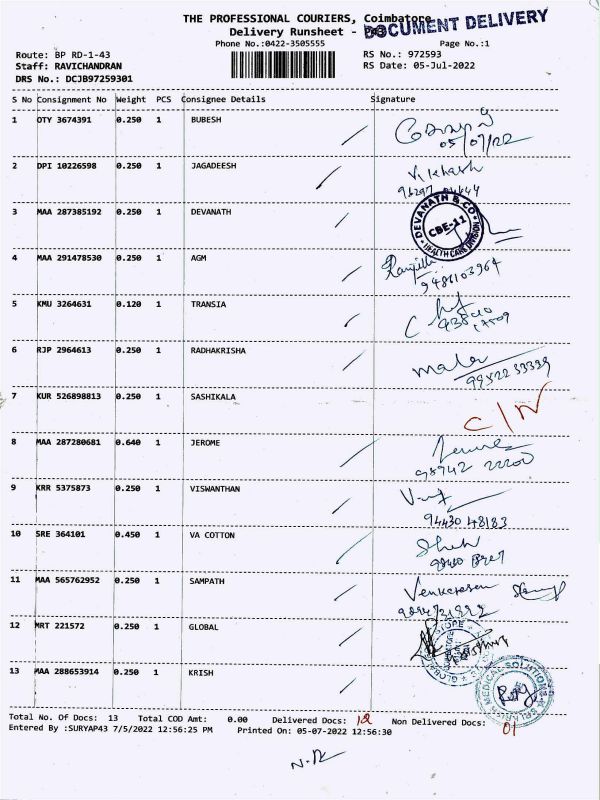 THE PROFESSIONAL COURIERS, Coimbatore
DOCUMENT DELIVERY
Delivery Runsheet - P43
Phone No.:0422-3505555 Page No.:1
Route: BP RD-1-43 RS No.: 972593
Staff: RAVICHANDRAN RS Date: 05-Jul-2022
DRS No.: DCJB97259301
S No Consignment No Weight PCS Consignee Details Signature
1 OTY 3674391 0.250 1 BUBESH
05/07/22
2 DPI 10226598 0.250 1 JAGADEESH
3 MAA 287385192 0.250 1 DEVANATH
DEVANATH & CO
CBE-11
HEALTH CARE DIVISION
4 MAA 291478530 0.250 1 AGM
9486103964
5 KMU 3264631 0.120 1 TRANSIA
6 RJP 2964613 0.250 1 RADHAKRISHA
mala
9952233339
7 KUR 526898813 0.250 1 SASHIKALA
C/N
8 MAA 287280681 0.640 1 JEROME
98942 22200
9 KRR 5375873 0.250 1 VISWANTHAN
94430 48183
10 SRE 364101 0.450 1 VA COTTON
11 MAA 565762952 0.250 1 SAMPATH
Venkatesan
12 MRT 221572 0.250 1 GLOBAL
13 MAA 288653914 0.250 1 KRISH
MEDICAL SOLUTIONS
Total No. Of Docs: 13 Total COD Amt: 0.00 Delivered Docs: 12 Non Delivered Docs: 01
Entered By :SURYAP43 7/5/2022 12:56:25 PM Printed On: 05-07-2022 12:56:30